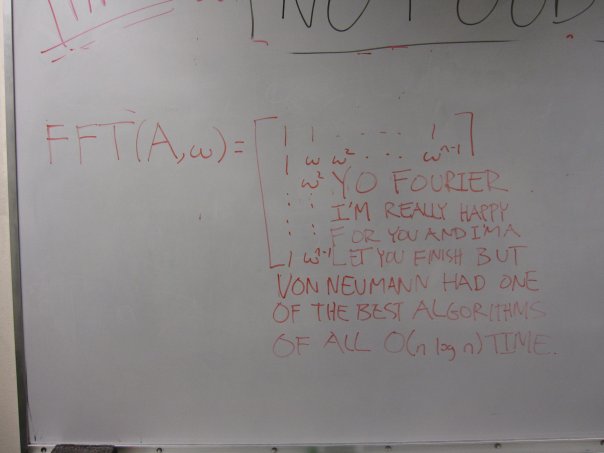 NO FOOD
FFT(A,ω)= [1 1 . . . . . 1]
1 ω ω² ... ωⁿ⁻¹
ω² YO FOURIER
: : I'M REALLY HAPPY
: : FOR YOU AND I'MA
1 ωⁿ⁻¹ LET YOU FINISH BUT
VON NEUMANN HAD ONE
OF THE BEST ALGORITHMS
OF ALL O(n log n) TIME.